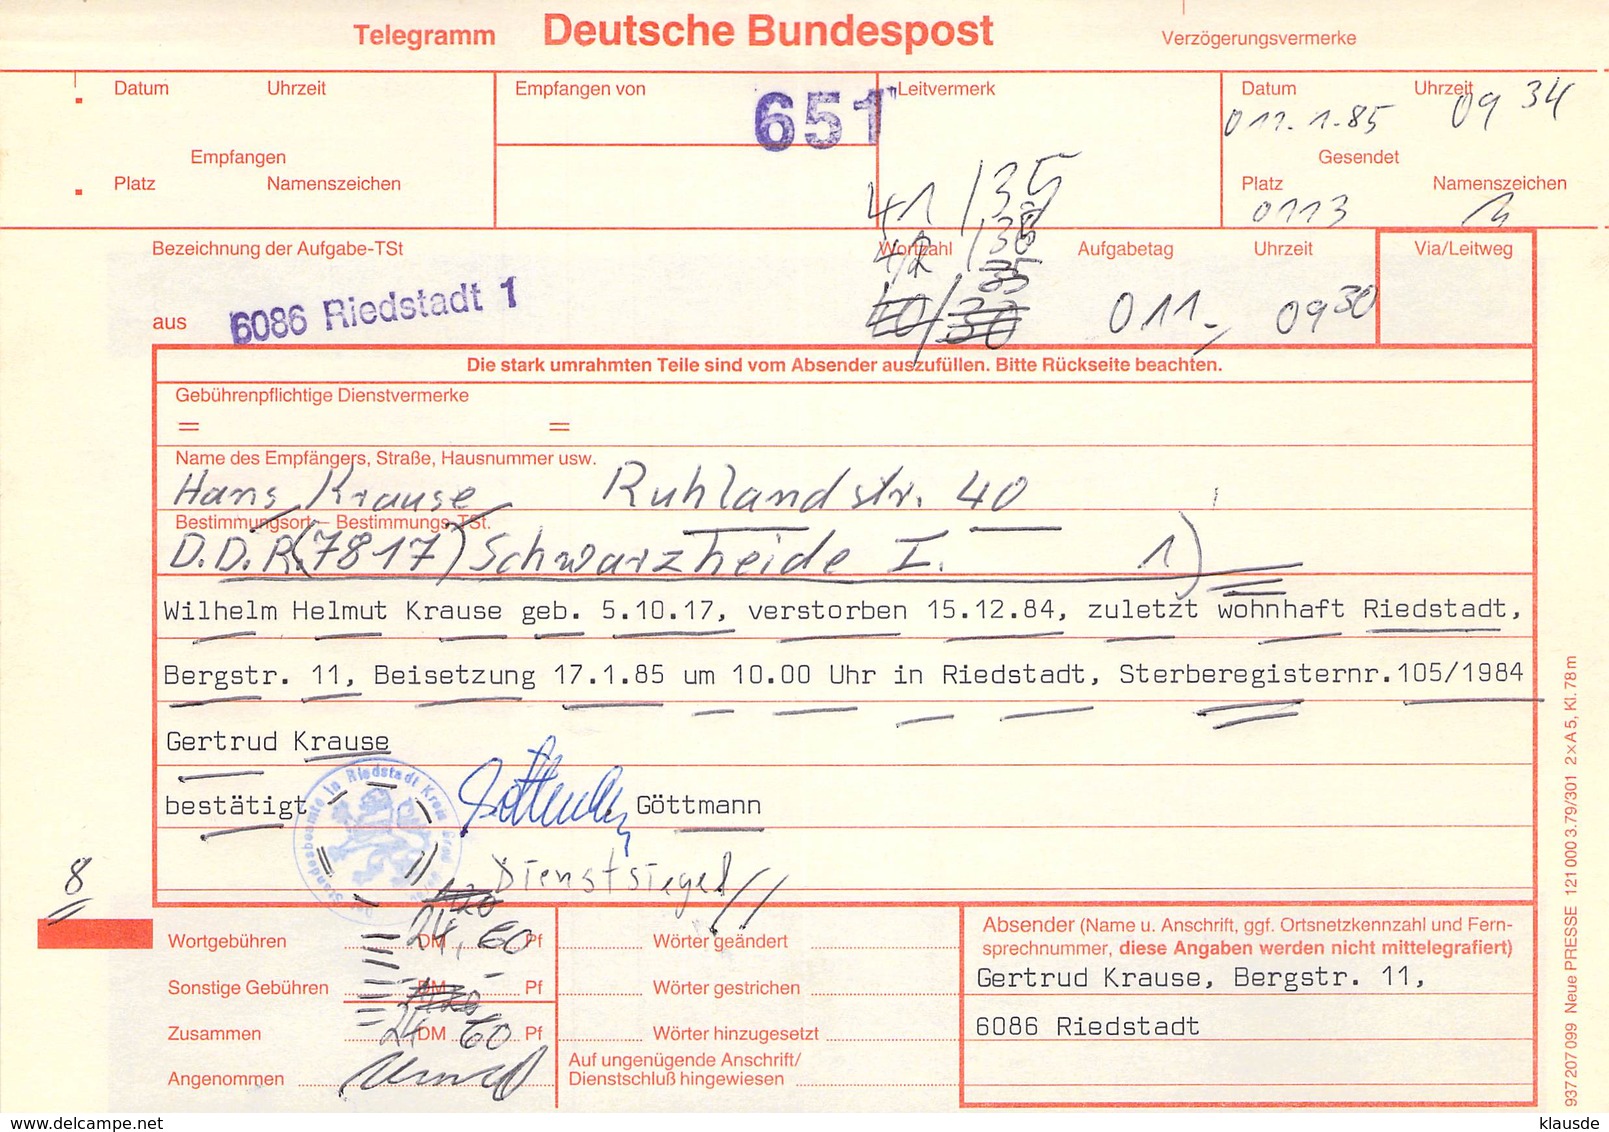 Telegramm Deutsche Bundespost Verzögerungsvermerke
Datum Uhrzeit Empfangen von 651 Leitvermerk Datum Uhrzeit
011.1.85 09 34
Empfangen Gesendet
Platz Namenszeichen Platz Namenszeichen
41 /35 0113
Bezeichnung der Aufgabe-TSt Wortzahl Aufgabetag Uhrzeit Via/Leitweg
42
aus 6086 Riedstadt 1 40/30 011. 09 30
Die stark umrahmten Teile sind vom Absender auszufüllen. Bitte Rückseite beachten.
Gebührenpflichtige Dienstvermerke
= =
Name des Empfängers, Straße, Hausnummer usw.
Hans Krause Ruhlandstr. 40
Bestimmungsort – Bestimmungs-TSt.
D.D.R.(7817) Schwarzheide I. 1)
Wilhelm Helmut Krause geb. 5.10.17, verstorben 15.12.84, zuletzt wohnhaft Riedstadt,
Bergstr. 11, Beisetzung 17.1.85 um 10.00 Uhr in Riedstadt, Sterberegisternr.105/1984
Gertrud Krause
bestätigt Göttmann
Der Standesbeamte in Riedstadt Kreis Groß-Gerau
8 Dienstsiegel //
Wortgebühren 24 DM 60 Pf Wörter geändert
Sonstige Gebühren DM Pf Wörter gestrichen
Zusammen 24 DM 60 Pf Wörter hinzugesetzt
Angenommen Auf ungenügende Anschrift/
Dienstschluß hingewiesen
Absender (Name u. Anschrift, ggf. Ortsnetzkennzahl und Fern-
sprechnummer, diese Angaben werden nicht mittelegrafiert)
Gertrud Krause, Bergstr. 11,
6086 Riedstadt
937 207 099 Neue PRESSE 121 000 3.79/301 2×A5, Kl. 78m
www.delcampe.net klausde